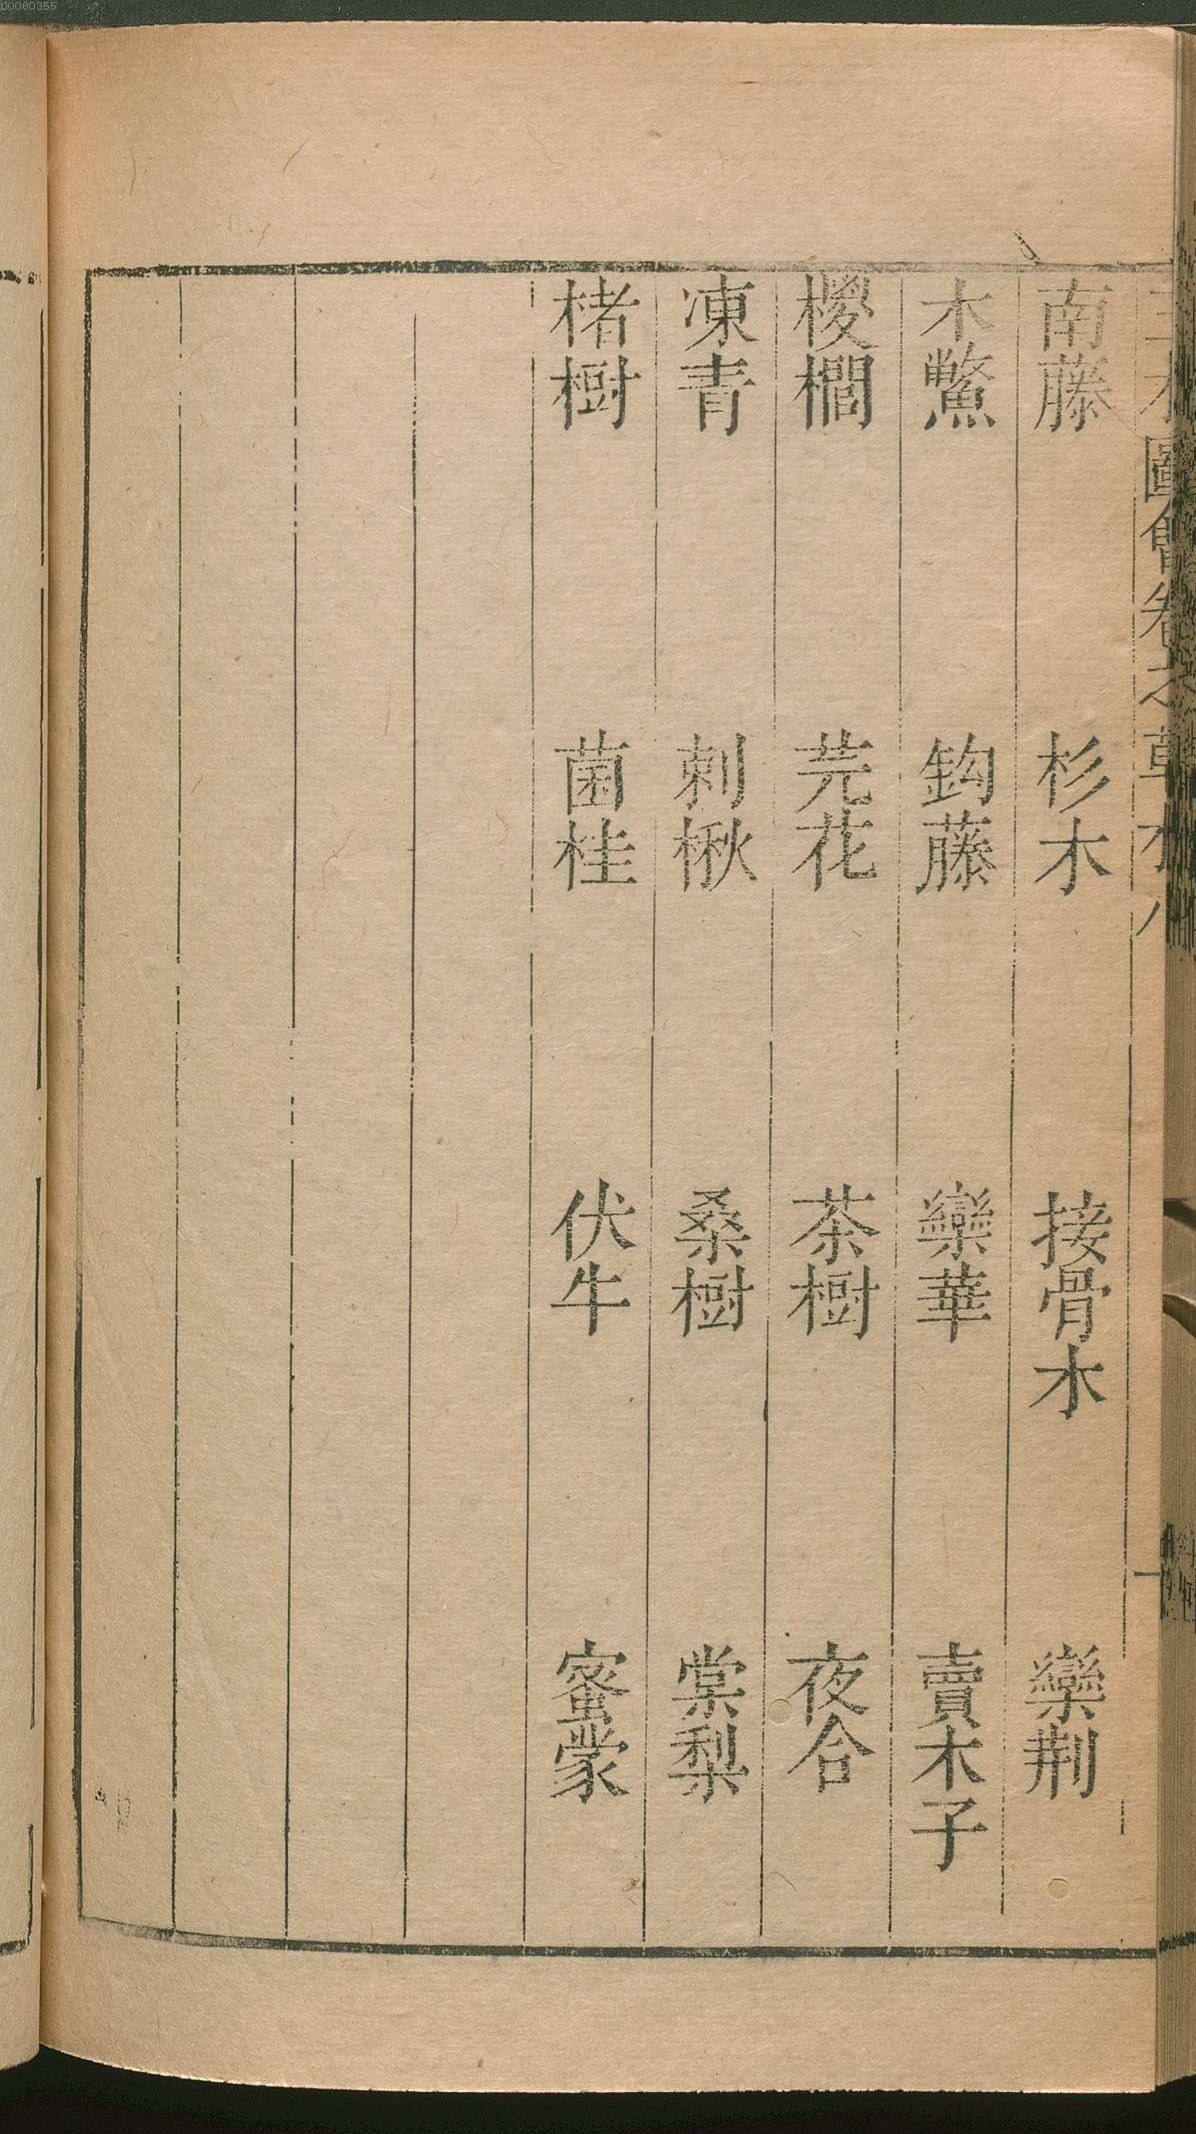 00060355
三才圖會卷之草木八
十
南藤 杉木 接骨木 欒荆
木鱉 鈎藤 欒華 賣木子
櫻櫚 芫花 茶樹 夜合
凍青 刺楸 桑樹 棠梨
楮樹 菌桂 伏牛 蜜蒙